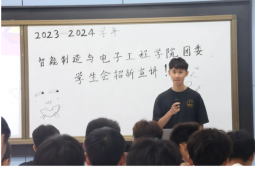 2023-2024学年
智能制造与电子工程学院团委
学生会招新宣讲!